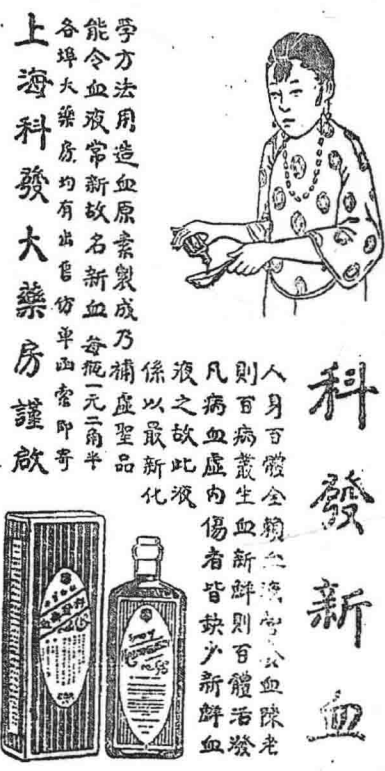 科發新血
人身百體全賴血液營養血陳老
則百病叢生血新鮮則百體活潑
凡病血虛內傷者皆缺少新鮮血
液之故此液
係以最新化
學方法用造血原素製成乃補虛聖品
能令血液常新故名新血 每瓶一元二角半
各埠大藥房均有出售仿單函索即寄
上海科發大藥房謹啟